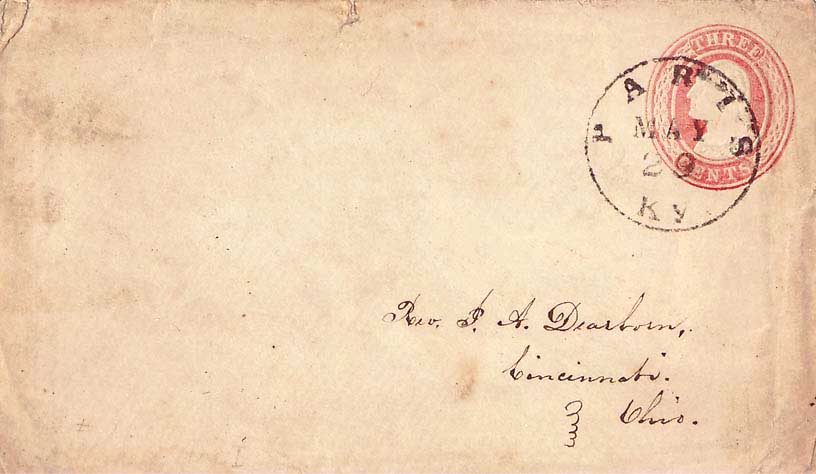 THREE
CENTS
PARIS
MAY
29
Ky
Rev. P. A. Dearborn,
Cincinnati.
Ohio.